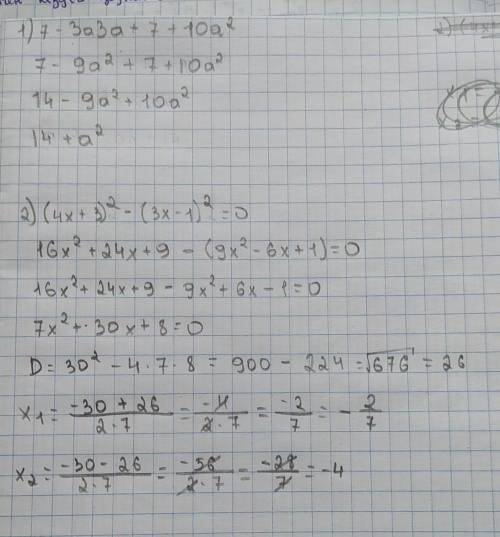 1) 7 - 3a3a + 7 + 10a²
7 - 9a² + 7 + 10a²
14 - 9a² + 10a²
14 + a²
2) (4x + 3)² - (3x - 1)² = 0
16x² + 24x + 9 - (9x² - 6x + 1) = 0
16x² + 24x + 9 - 9x² + 6x - 1 = 0
7x² + 30x + 8 = 0
D = 30² - 4 · 7 · 8 = 900 - 224 = √676 = 26
x₁ = (-30 + 26)/(2 · 7) = -4/(2 · 7) = -2/7 = -2/7
x₂ = (-30 - 26)/(2 · 7) = -56/(2 · 7) = -28/7 = -4